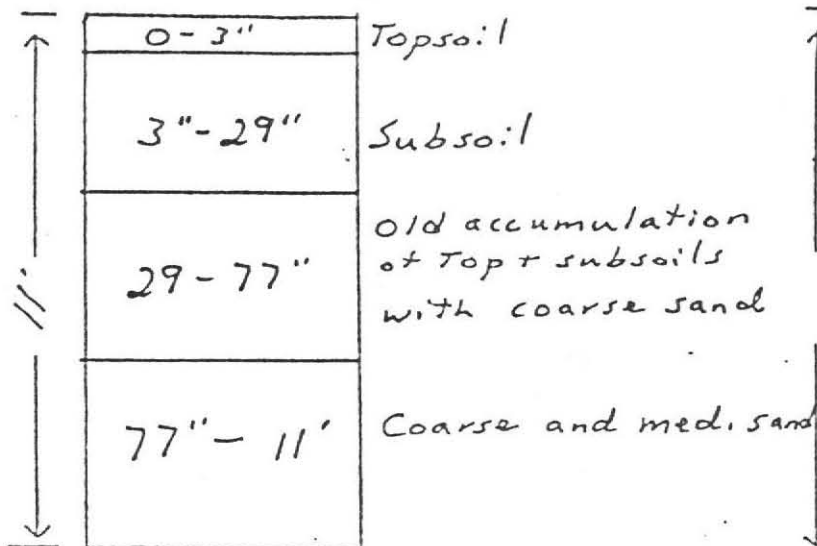 0-3" Topsoil
3"-29" Subsoil
Old accumulation
29-77" of Top + subsoils
with coarse sand
11'
77"- 11' Coarse and med. sand